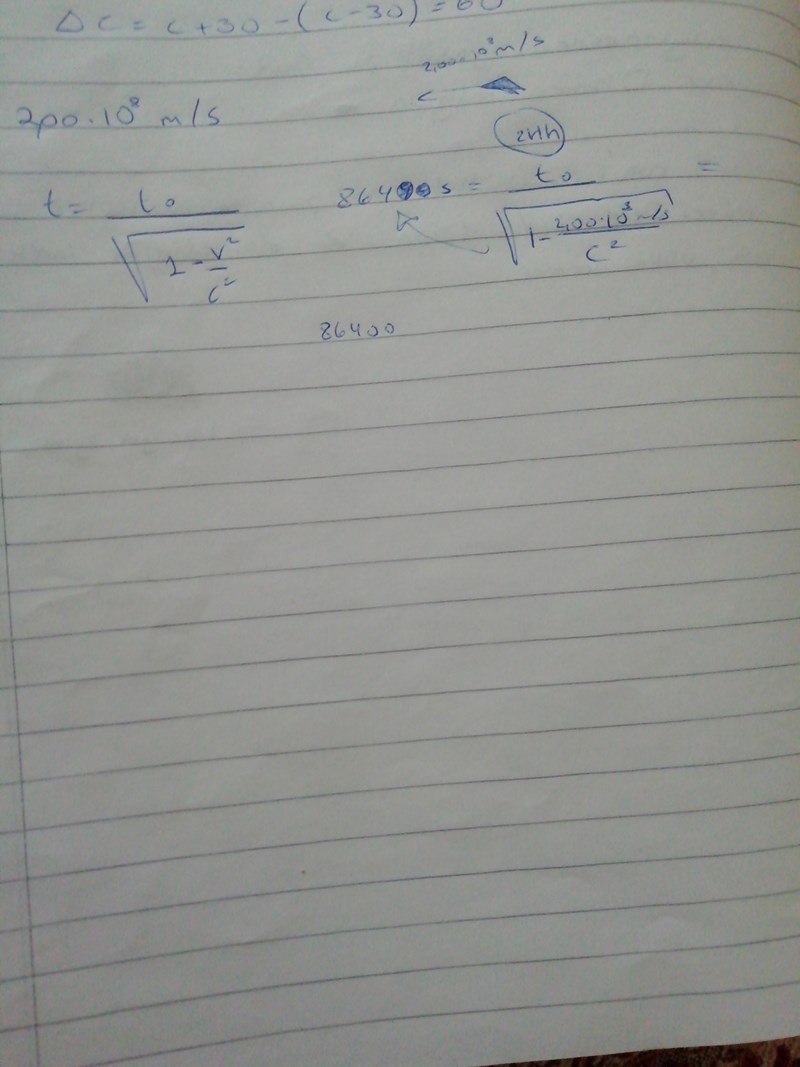 Δc = c+30 - (c-30) = 60
2,00·10⁸ m/s
2,00·10⁸ m/s
c
24h
t = t₀ / √(1 - v²/c²)
86400 s = t₀ / √(1 - 2,00·10⁸ m/s / c²) =
86400